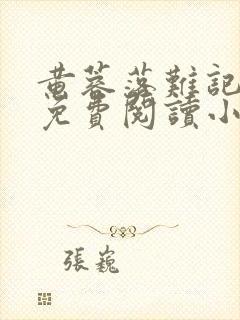 黄蓉落難記
免費閱讀小
張巍